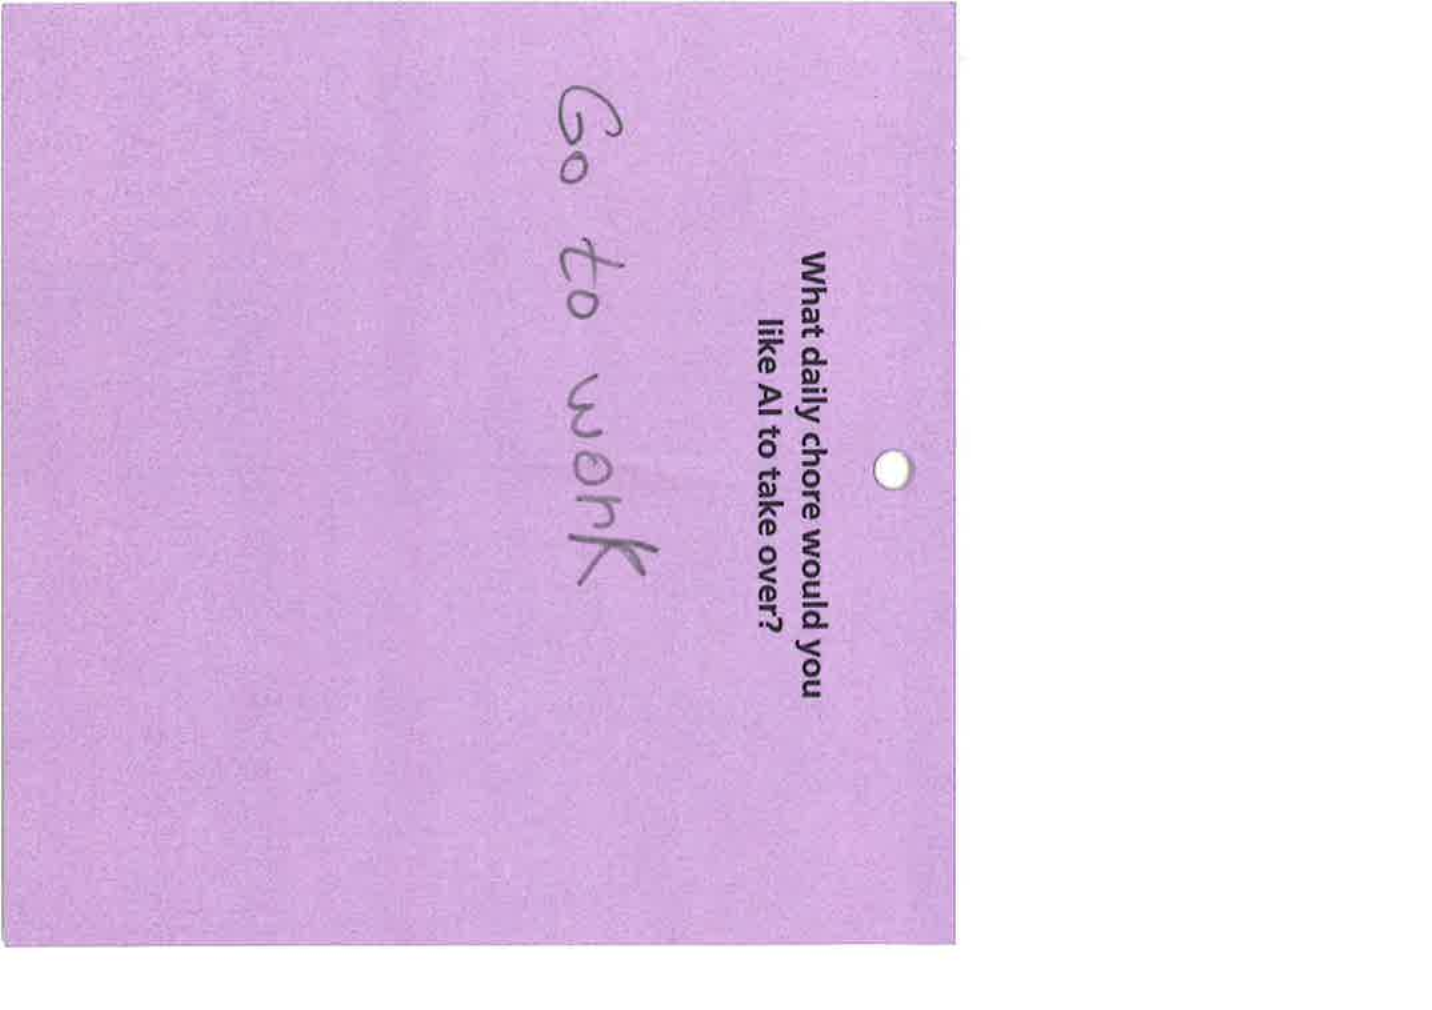 What daily chore would you
like AI to take over?
Go to work